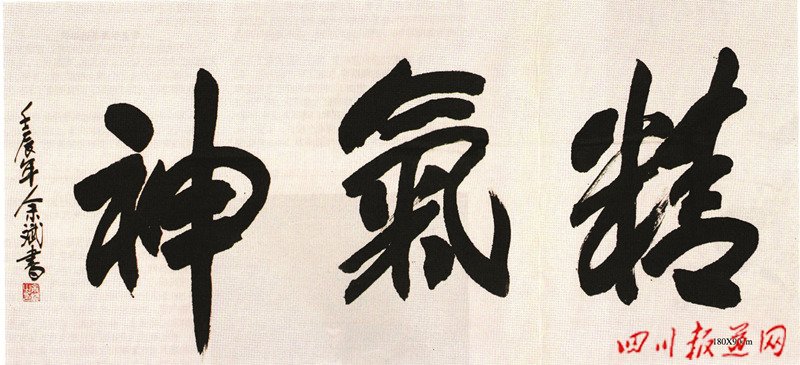 精氣神
壬辰年余斌書
180X90cm
四川报道网